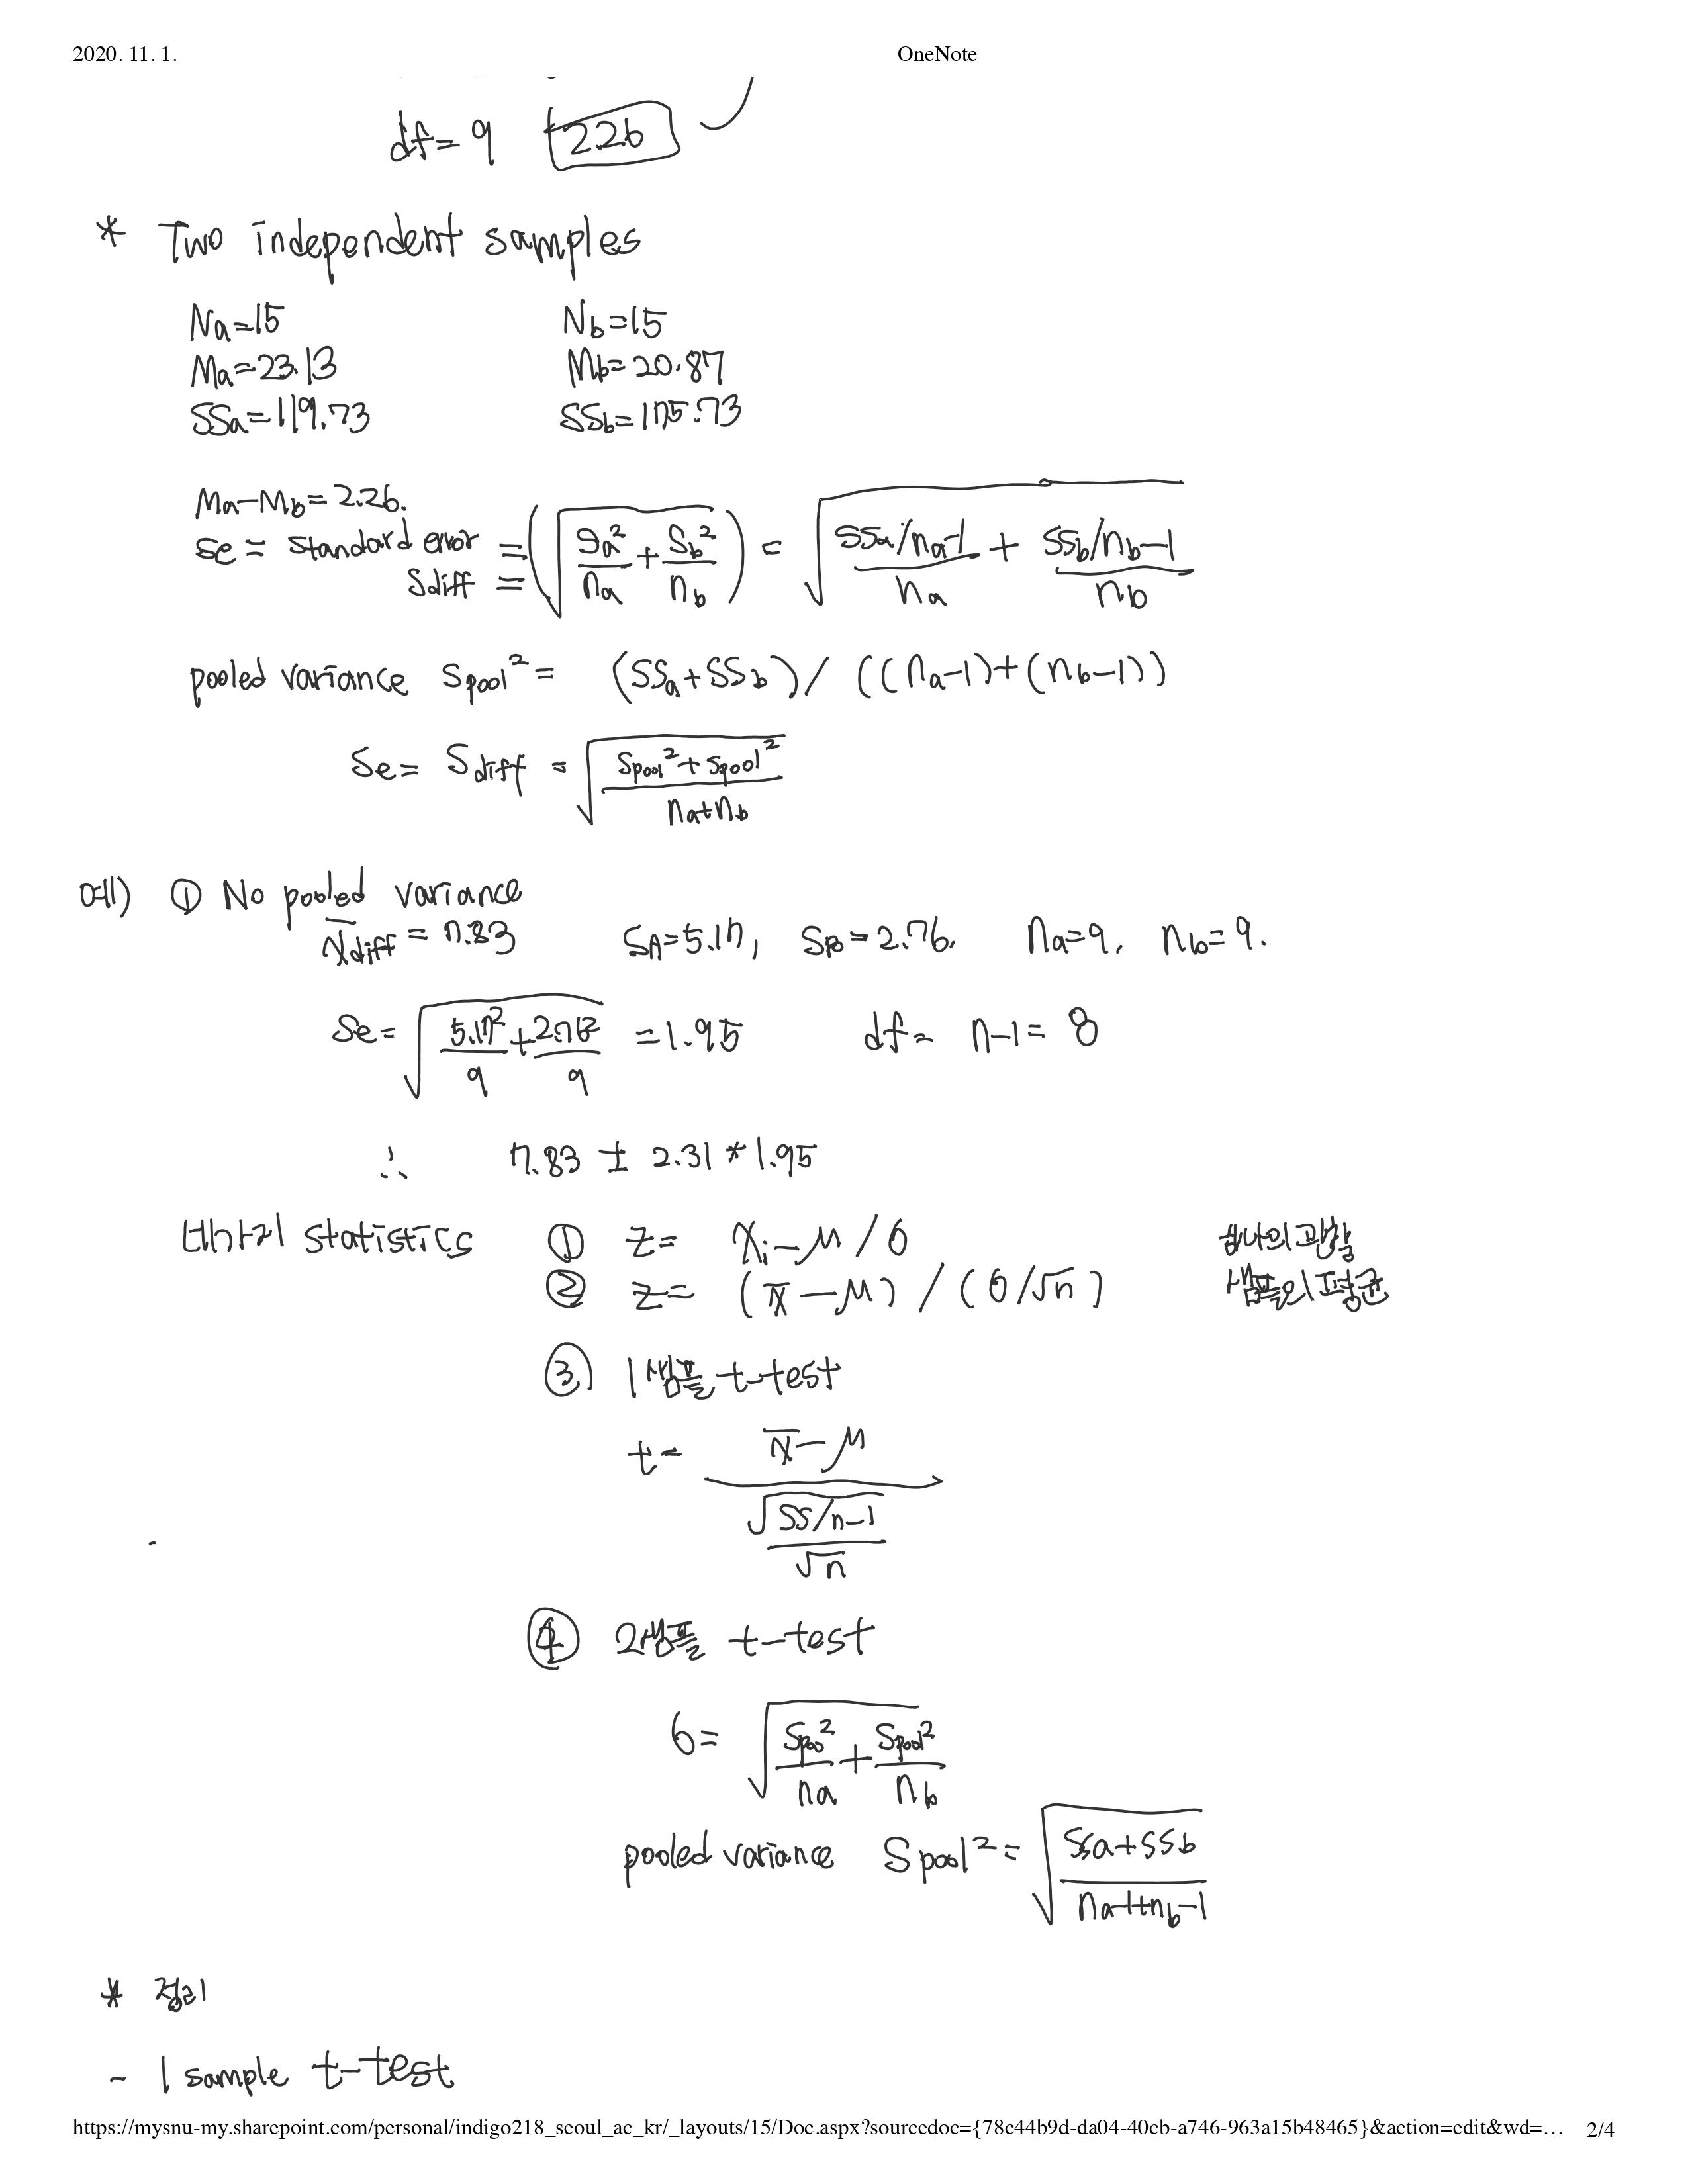 2020. 11. 1.
OneNote
df= 9 2.26
* Two independent samples
Na=15 Nb=15
Ma=23.13 Mb=20.87
SSa=119.73 SSb=175.73
Ma-Mb=2.26.
Se = standard error = (√(Sa²/na + Sb²/nb)) = √((SSa/na-1)/na + (SSb/nb-1)/nb)
Sdiff =
pooled variance Spool² = (SSa+SSb) / ((na-1)+(nb-1))
Se = Sdiff = √((Spool²+Spool²)/(na+nb))
예) ① No pooled variance
X̄diff = 7.83 SA=5.17, SB=2.76. na=9, nb=9.
Se= √(5.17²/9 + 2.76²/9) =1.95 df= n-1= 8
∴ 7.83 ± 2.31*1.95
statistics ① z= Xi-μ/σ 하나의 관찰
② z= (x̄-μ)/(σ/√n) 샘플의 평균
③ 1샘플 t-test
t= (x̄-μ)/(√(SS/n-1)/√n)
④ 2샘플 t-test
σ= √(Spoo²/na + Spool²/nb)
pooled variance Spool²= √((SSa+SSb)/(na-1+nb-1))
* 정리
- 1 sample t-test
https://mysnu-my.sharepoint.com/personal/indigo218_seoul_ac_kr/_layouts/15/Doc.aspx?sourcedoc={78c44b9d-da04-40cb-a746-963a15b48465}&action=edit&wd=… 2/4